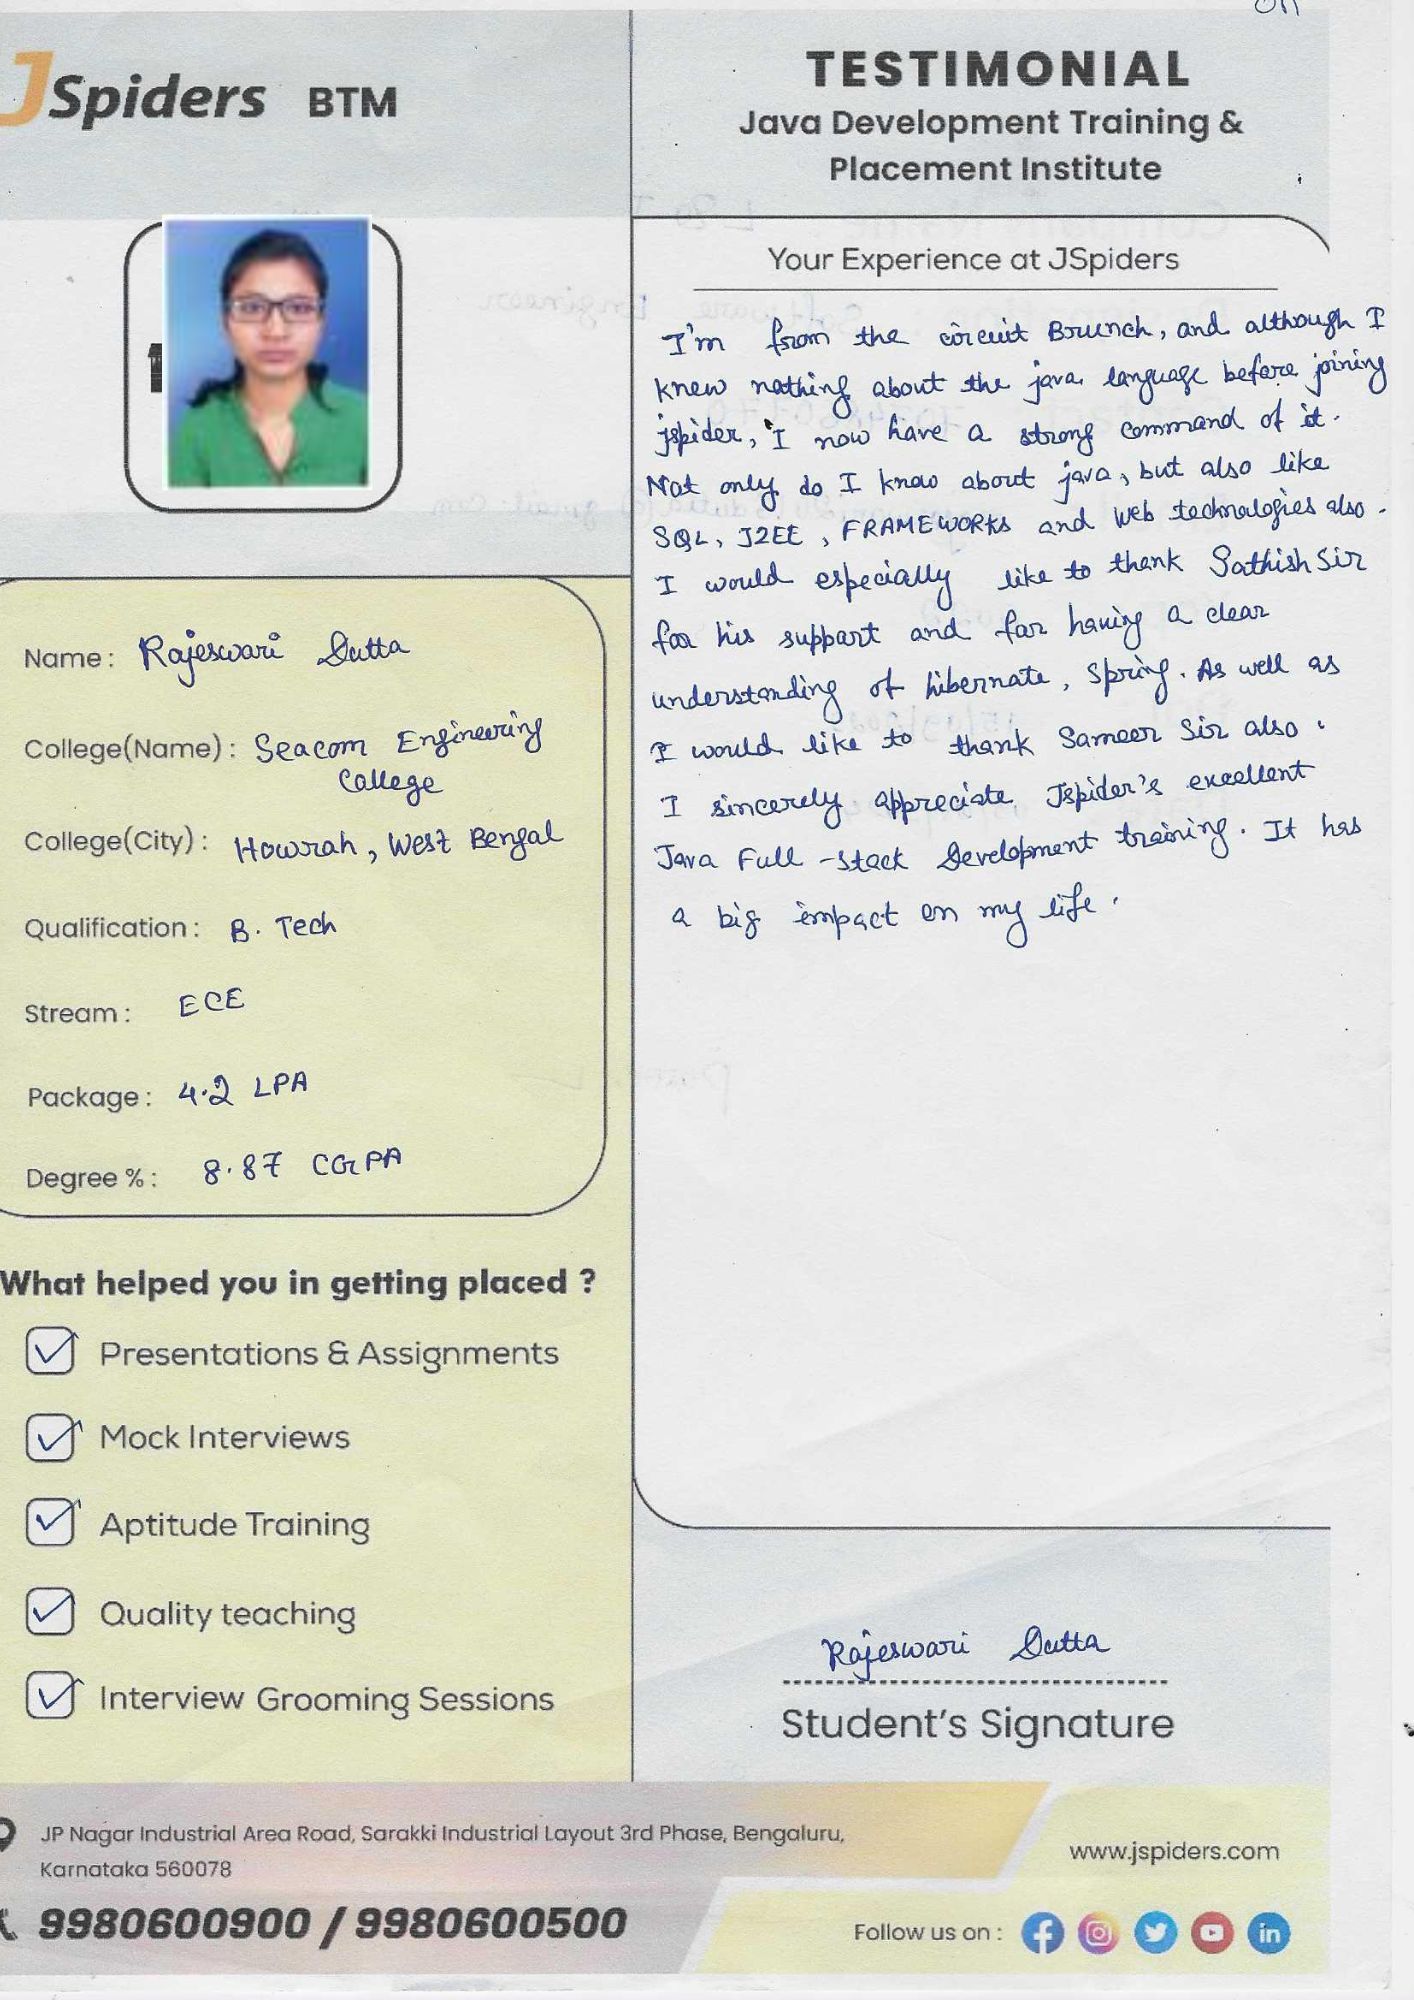 JSpiders BTM
TESTIMONIAL
Java Development Training &
Placement Institute
Your Experience at JSpiders
I'm from the circuit Brunch, and although I
knew nothing about the java language before joining
jspider, I now have a strong command of it.
Not only do I know about java, but also like
SQL, J2EE, FRAMEWORKS and Web technologies also.
I would especially like to thank Sathish Sir
for his support and for having a clear
understanding of hibernate, spring. As well as
I would like to thank Sameer Sir also.
I sincerely appreciate Jspider's excellent
Java Full-stack Development training. It has
a big impact on my life.
Name: Rajeswari Dutta
College(Name): Seacom Engineering
College
College(City): Howrah, West Bengal
Qualification: B. Tech
Stream: ECE
Package: 4.2 LPA
Degree %: 8.87 CGPA
What helped you in getting placed ?
Presentations & Assignments
Mock Interviews
Aptitude Training
Quality teaching
Interview Grooming Sessions
Rajeswari Dutta
Student's Signature
JP Nagar Industrial Area Road, Sarakki Industrial Layout 3rd Phase, Bengaluru,
Karnataka 560078
9980600900 / 9980600500
www.jspiders.com
Follow us on :